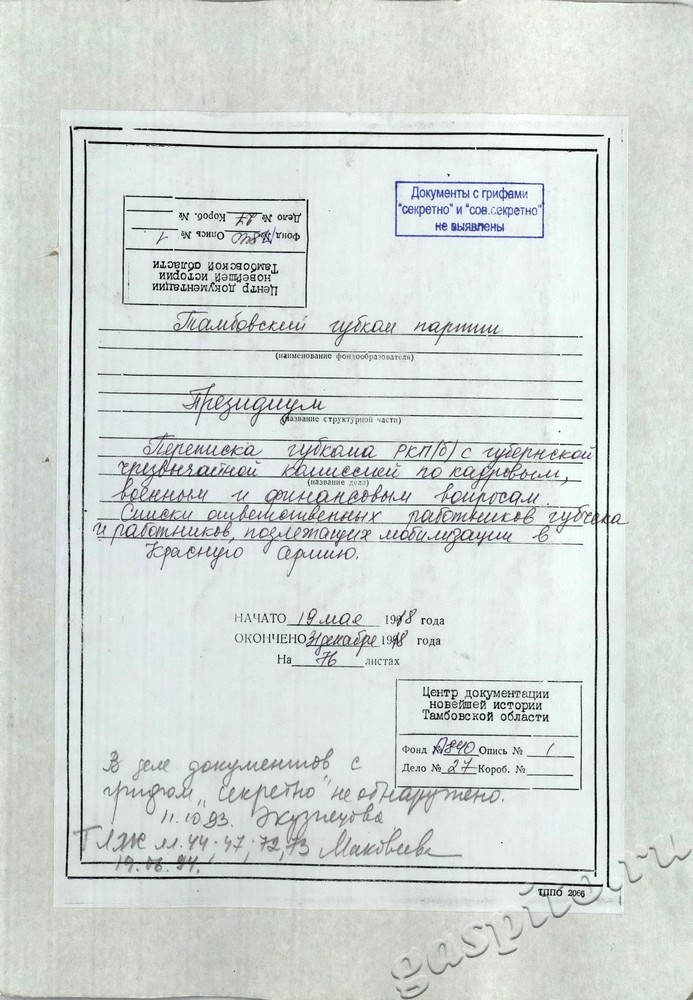 Документы с грифами
"секретно" и "сов.секретно"
не выявлены
Центр документации
новейшей истории
Тамбовской области
Фонд № П840 Опись № 1
Дело № 27 Короб. №
Тамбовский губком партии
(наименование фондообразователя)
Президиум
(название структурной части)
Переписка губкома РКП(б) с губернской
чрезвычайной комиссией по кадровым,
(название дела)
военным и финансовым вопросам.
Списки ответственных работников губчека
и работников, подлежащих мобилизации в
Красную армию.
НАЧАТО 19 мая 1918 года
ОКОНЧЕНО 31 декабря 1918 года
На 76 листах
Центр документации
новейшей истории
Тамбовской области
Фонд № П840 Опись № 1
Дело № 27 Короб. №
В деле документов с
грифом "секретно" не обнаружено.
11.10.93. Экузнецова
лл. 44-47, 72, 73 Маковеева
19.06.94.
ТППО 2066
gaspito.ru